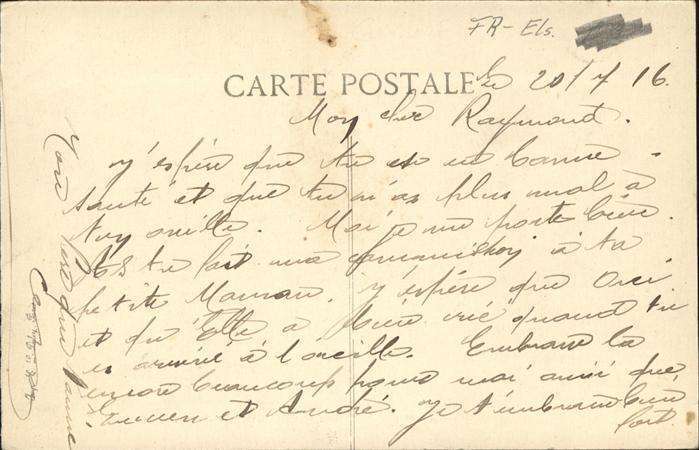 FR-Els.
CARTE POSTALE
Le 20/7 16.
Mon cher Raymond.
J'espère que tu es en bonne
santé et que tu n'as plus mal à
ton oreille. Moi je me porte bien.
As tu fait ma commission à ta
petite Maman. J'espère que Oui.
et qu'Elle a bien crié quand tu
es arrivé à l'oreille. Embrasse la
encore beaucoup pour moi ainsi que
Lucien et André. Je t'embrasse bien
fort
Ton Parrain